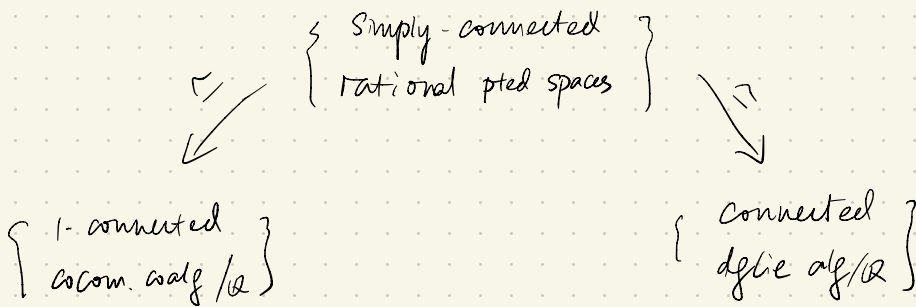 { Simply-connected
rational pted spaces }
≃
≃
{ 1-connected
cocom. coalg /ℚ }
{ connected
dglie alg/ℚ }